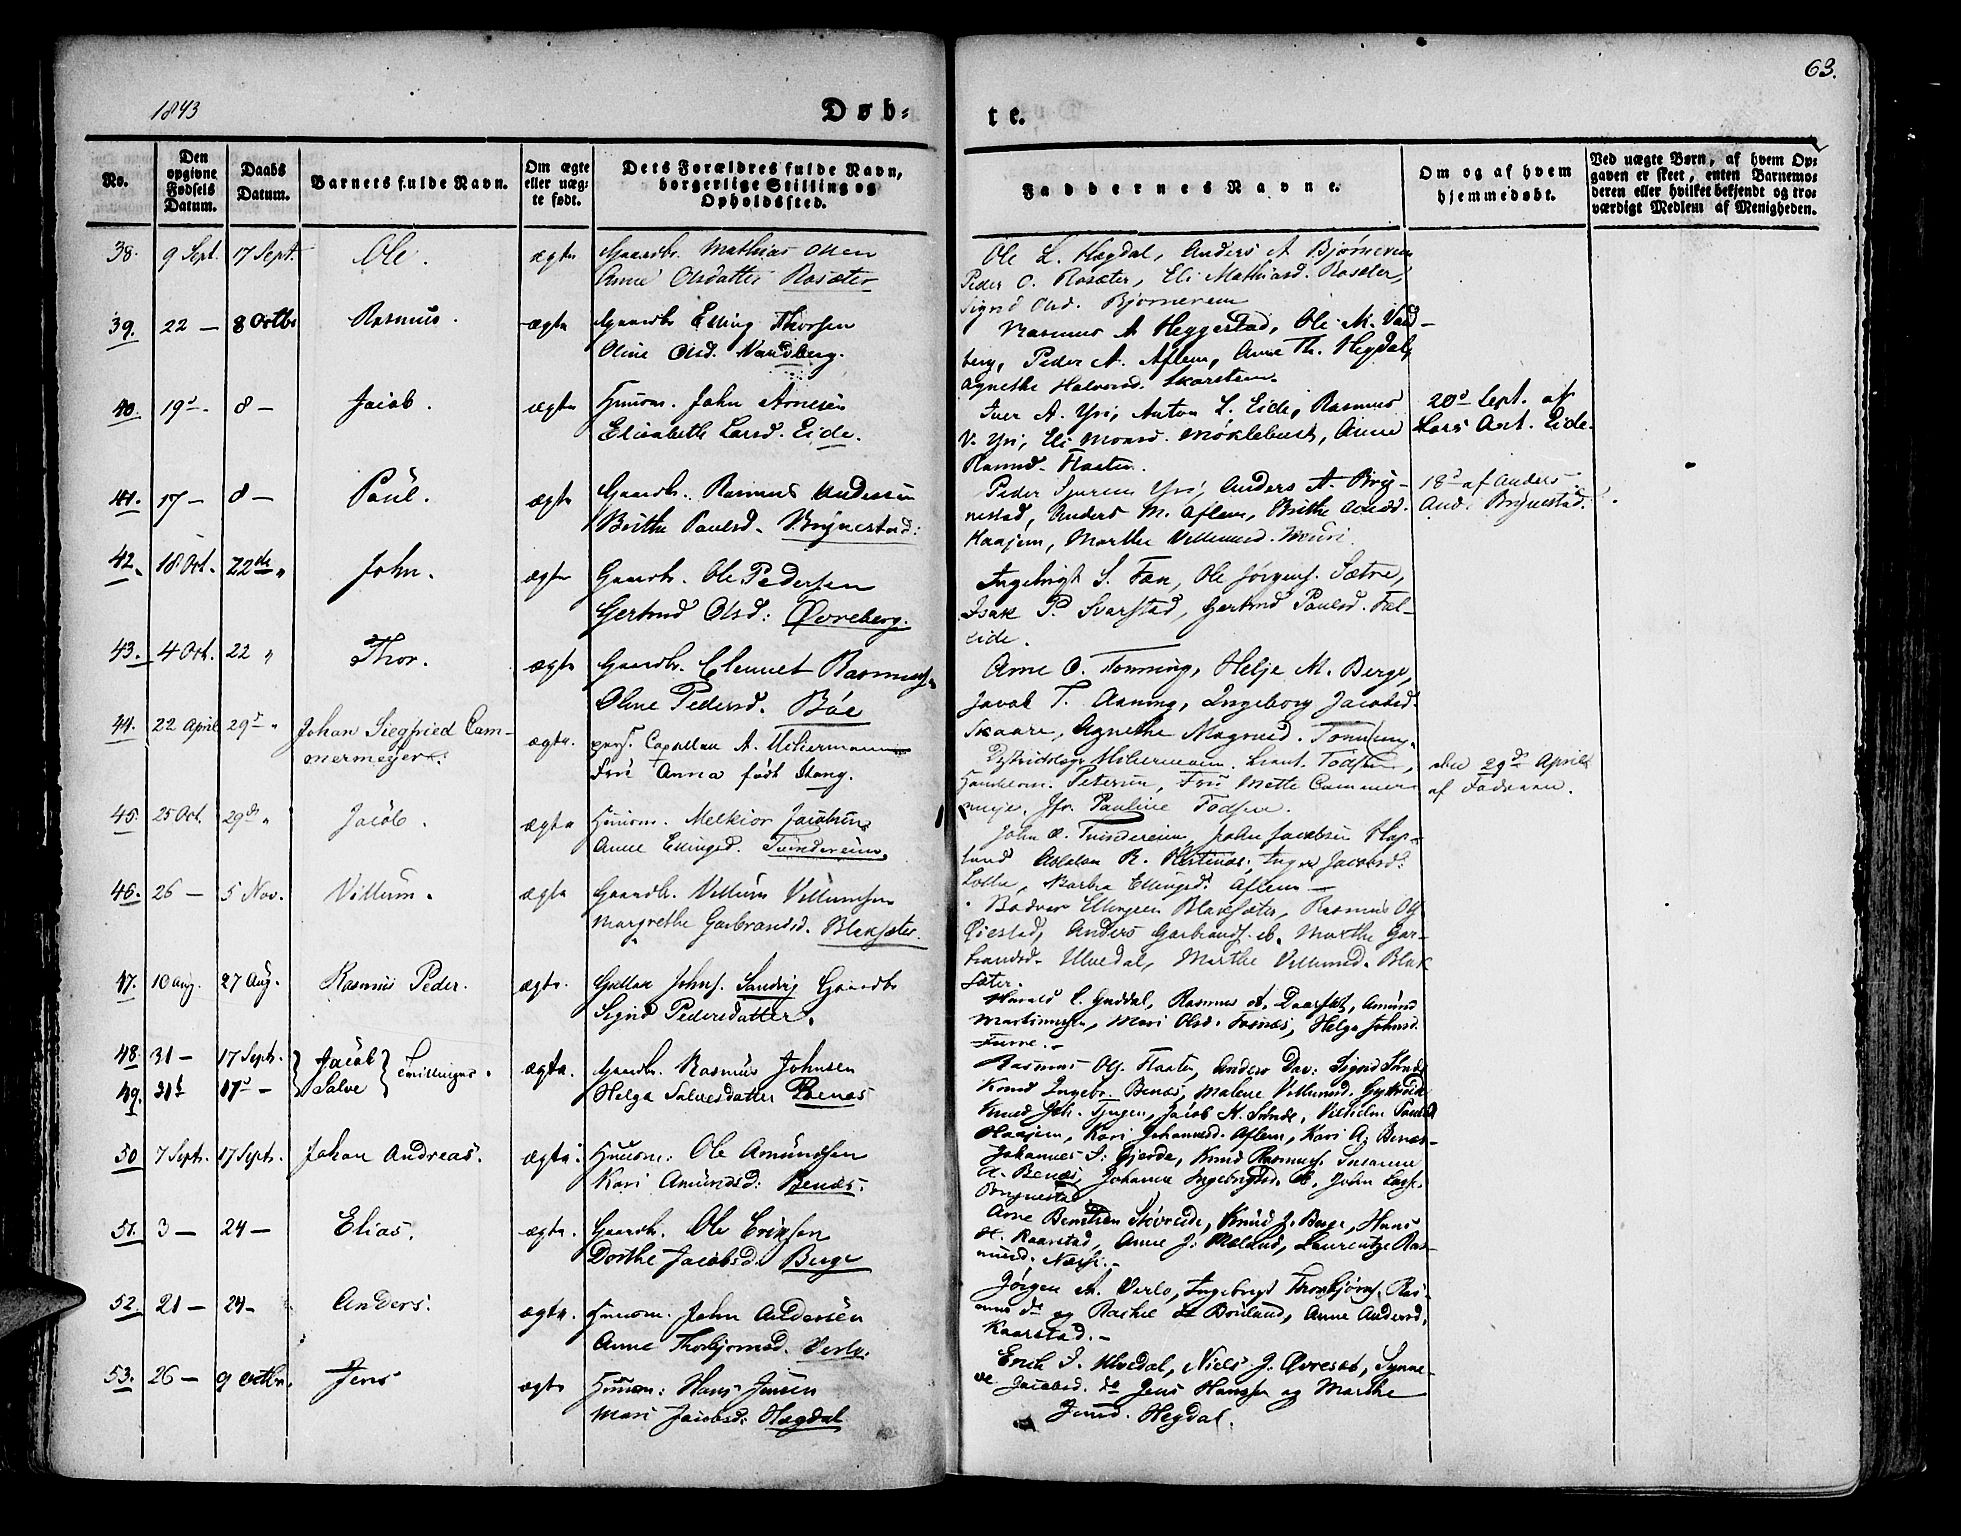 1843
Døb=
te.
63.
No.
Den opgivne Fødsels Datum.
Daabs Datum.
Barnets fulde Navn.
Om ægte eller uægte født.
Dets Forældres fulde Navn, borgerlige Stilling og Opholdssted.
Faddernes Navne.
Om og af hvem hjemmedøbt.
Ved uægte Børn, af hvem Opgaven er skeet, enten Barnemoderen eller hvilket bekjendt og troværdigt Medlem af Menigheden.
38. 9 Sept. 17 Sept. Ole. ægte Gaardbr. Mathias Olsen
Anne Olsdatter Rosæter
Ole L. Hægdal, Anders A Bjørnereim
Peder O. Rosæter, Eli Mathiasd. Rosæter,
Sigrid Olsd. Bjørnereim
39. 22 — 8 Octbr Rasmus. ægte Gaardbr Elling Thorsen
Oline Olsd. Nordberg.
Rasmus A Heggestad, Ole M.
berg, Peder A. Aflem, Anne Th. Hegdal,
Agnethe Halvorsd. Skarstein.
40. 19d. 8 — Jacob. ægte Huusm. John Arnesen
Elisabeth Larsd. Eide.
Iver A. Yri, Anton L. Eide, Rasmus
V. Yri, Eli Monsd. Møklebust, Anne
Rasmd. Floten.
20d Sept. af
Lars Ant. Eide.
41. 17 — 8 — Paul. ægte Gaardbr. Rasmus Andersen
Brithe Paulsd. Brynestad:
Peder Yri, Anders A. Bry-
nestad, Anders M. Aflem, Brithe
Haajem, Marthe Villumsd. Muri.
18d af Anders
And. Brynestad.
42. 18 Oct. 22de " John. ægte Gaardbr. Ole Pedersen
Gertrud Olsd: Øvreberg.
Ingebrigt S. Fæn, Ole Jørgens. Sætre,
Isak P. Svarstad, Gertrud Paulsd. Fal-
eide.
43. 4 Oct. 22 " Thor. ægte Gaardbr. Clemmet Rasmussen
Oline Pedersd. Böe
Arne O. Tonning, Helje M. Berge,
Jacob T. Aaning, Ingeborg Jacobsd.
Skaare, Agnethe Magnusd. Tonning.
44. 22 April 29d " Johan Siegfried Cam-
mermeyer. ægte. pers. Capellan A.
Frü Anna født Stang.
Lieut. Todsen,
Petersen, Frü Mette Cammer-
meyer, Jfr. Pauline Todsen.
den 29de April
af Faderen.
45. 25 Oct. 29de " Jacob. ægte Huusm. Melkior Jacobsen
Anne Ellingsd. Tvindereim.
John A. Tvindereim, John Jacobsen Hop-
land R. Hestnæs, Inger Jacobsd:
Lotte, Barbra Ellingsd: Aflem —
46. 26 — 5 Nov. Villum. ægte Gaardbr. Villum Villumsen
Margrethe Garbrandsd. Blaksæter.
Bodvar Ellingsen Blaksæter, Rasmus Ols
Øiestad, Anders Garbrands. ib. Marthe Gar-
brandsd. Ulvedal, Marthe Villumsd. Blak
sæter.
47. 10 Aug. 27 Aug. Rasmus Peder. ægte. Johns. Sandvig Gaardbr
Sigrid Pedersdatter.
Harald L. Guddal, Rasmus A. Amund
Martinussen, Mari Olsd. Fosnæs, Helga Johnsd.
Furre. —
48. 31 — 17 Septr. Jacob
49. 31t 17d — Salve
Tvillinger. ægte. Gaardbr. Rasmus Johnsen
Helga Salvesdatter Benæs
Rasmus Ols. Floten, Anders Dav: Sigrid
Knud Ingebr. Benæs, Malene Villumsd.
Knud Joh. Jacob K. Sunde, Vilhelm
Haajem, Kari Johannesd. Aflem, Kari A. Benæs —
50 7 Septr. 17 Septr. Johan Andreas. ægte: Huusm: Ole Amundsen
Kari Amundsd: Benæs.
Johannes I. Gjerde, Knud Rasmuss. Susanne
A. Benæs, Johanne Ingebrigtsd. ib, John Lass.
Brynestad
51. 3 — 24 — Elias. ægte. Gaardbr. Ole Eriksen
Dorthe Jacobsd. Berge
Arne Bentsen Skovreide, Knud J. Berge, Hans
H. Kaarstad, Anne J: Moland, Laurentze Ras-
musd. Næss. —
52. 21 — 24 — Anders. ægte. Huusm: John Andersen
Anne Thorbjørnsd. Verlo.
Jørgen A. Verlo, Ingebrigt Thorbjørns. Ras-
mus do og Rachel Anne Andersd.
Kaarstad. —
53. 26 — 9 octbr. Jens ægte Huusm: Hans Jensen
Mari Jacobsd: Hægdal
Erich I. Ulvedal, Niels J: Øvresæt, Synne-
ve Jacobsd. do Jens Hanssen og Marthe
Hegdal.